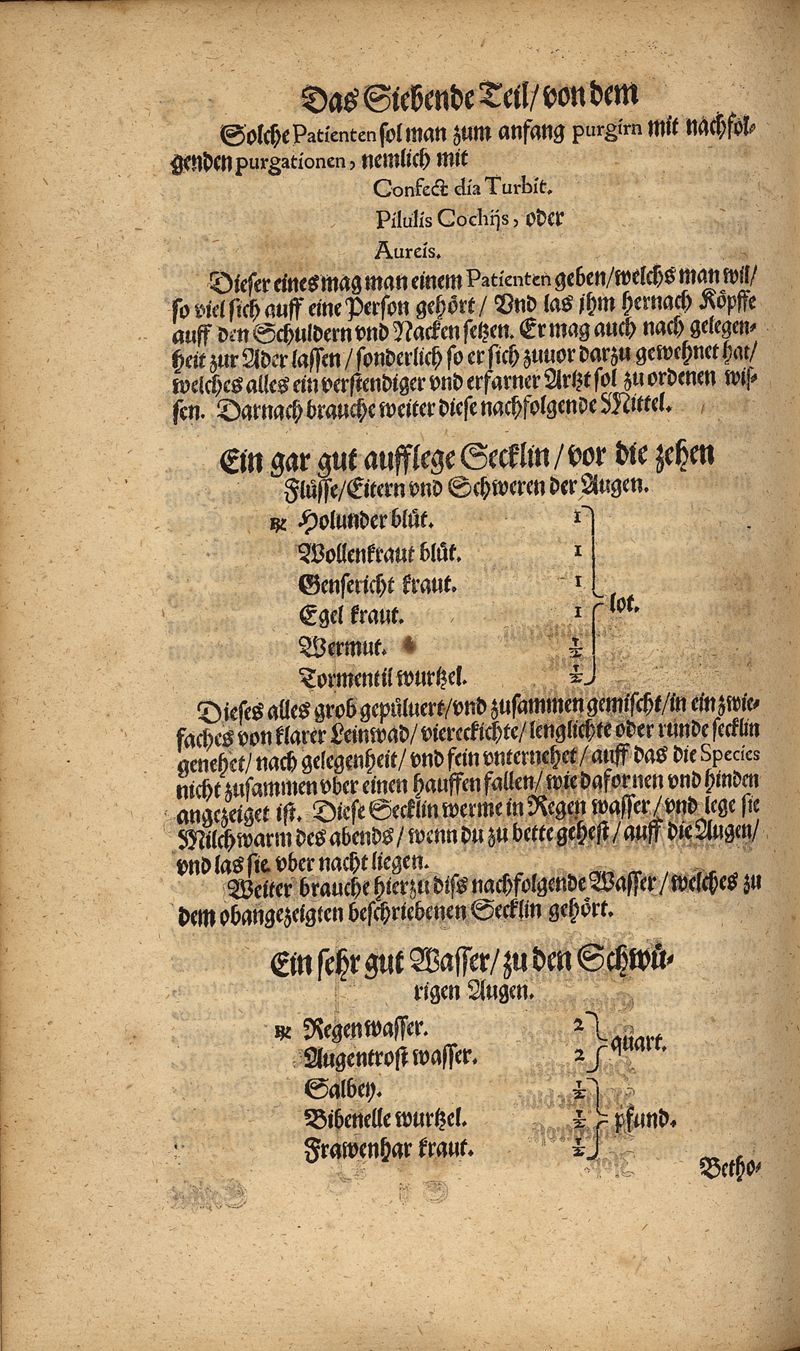 Das Siebende Teil/ von dem
Solche Patienten sol man zum anfang purgirn mit nachfol⸗
genden purgationen, nemlich mit
Confect dia Turbit.
Pilulis Cochijs, oder
Aureis.
Dieser eines mag man einem Patienten geben/ welchs man wil/
so viel sich auff eine Person gehört/ Vnd las jhm hernach Köpffe
auff den Schuldern vnd Nacken setzen. Er mag auch nach gelegen⸗
heit zur Ader lassen/ sonderlich so er sich zuuor darzu gewehnet hat/
welches alles ein verstendiger vnd erfarner Artzt sol zu ordenen wis⸗
sen. Darnach brauche weiter diese nachfolgende Mittel.
Ein gar gut aufflege Secklin/ vor die zehen
Flüsse/ Eitern vnd Schweren der Augen.
℞ Holunder blüt. 1
Wollenkraut blüt. 1
Gensericht kraut. 1
Egel kraut. 1 lot.
Wermut. ½
Tormentil wurtzel. ½
Dieses alles grob gepüluert/ vnd zusammen gemischt/ in ein zwie⸗
faches von klarer Leinwad/ viereckichte/ lenglichte oder runde secklin
genehet/ nach gelegenheit/ vnd fein vnternehet/ auff das die Species
nicht zusammen vber einen hauffen fallen/ wie dafornen vnd hinden
angezeiget ist. Diese Secklin werme in Regen wasser/ vnd lege sie
Milchwarm des abends/ wenn du zu bette gehest/ auff die Augen/
vnd las sie vber nacht liegen.
Weiter brauche hierzu diss nachfolgende Wasser/ welches zu
dem obangezeigten beschriebenen Secklin gehört.
Ein sehr gut Wasser/ zu den Schwü⸗
rigen Augen.
℞ Regenwasser. 2
Augentrost wasser. 2 quart.
Salbey. ½
Bibenelle wurtzel. ½ pfund.
Frawenhar kraut. ½
Betho⸗